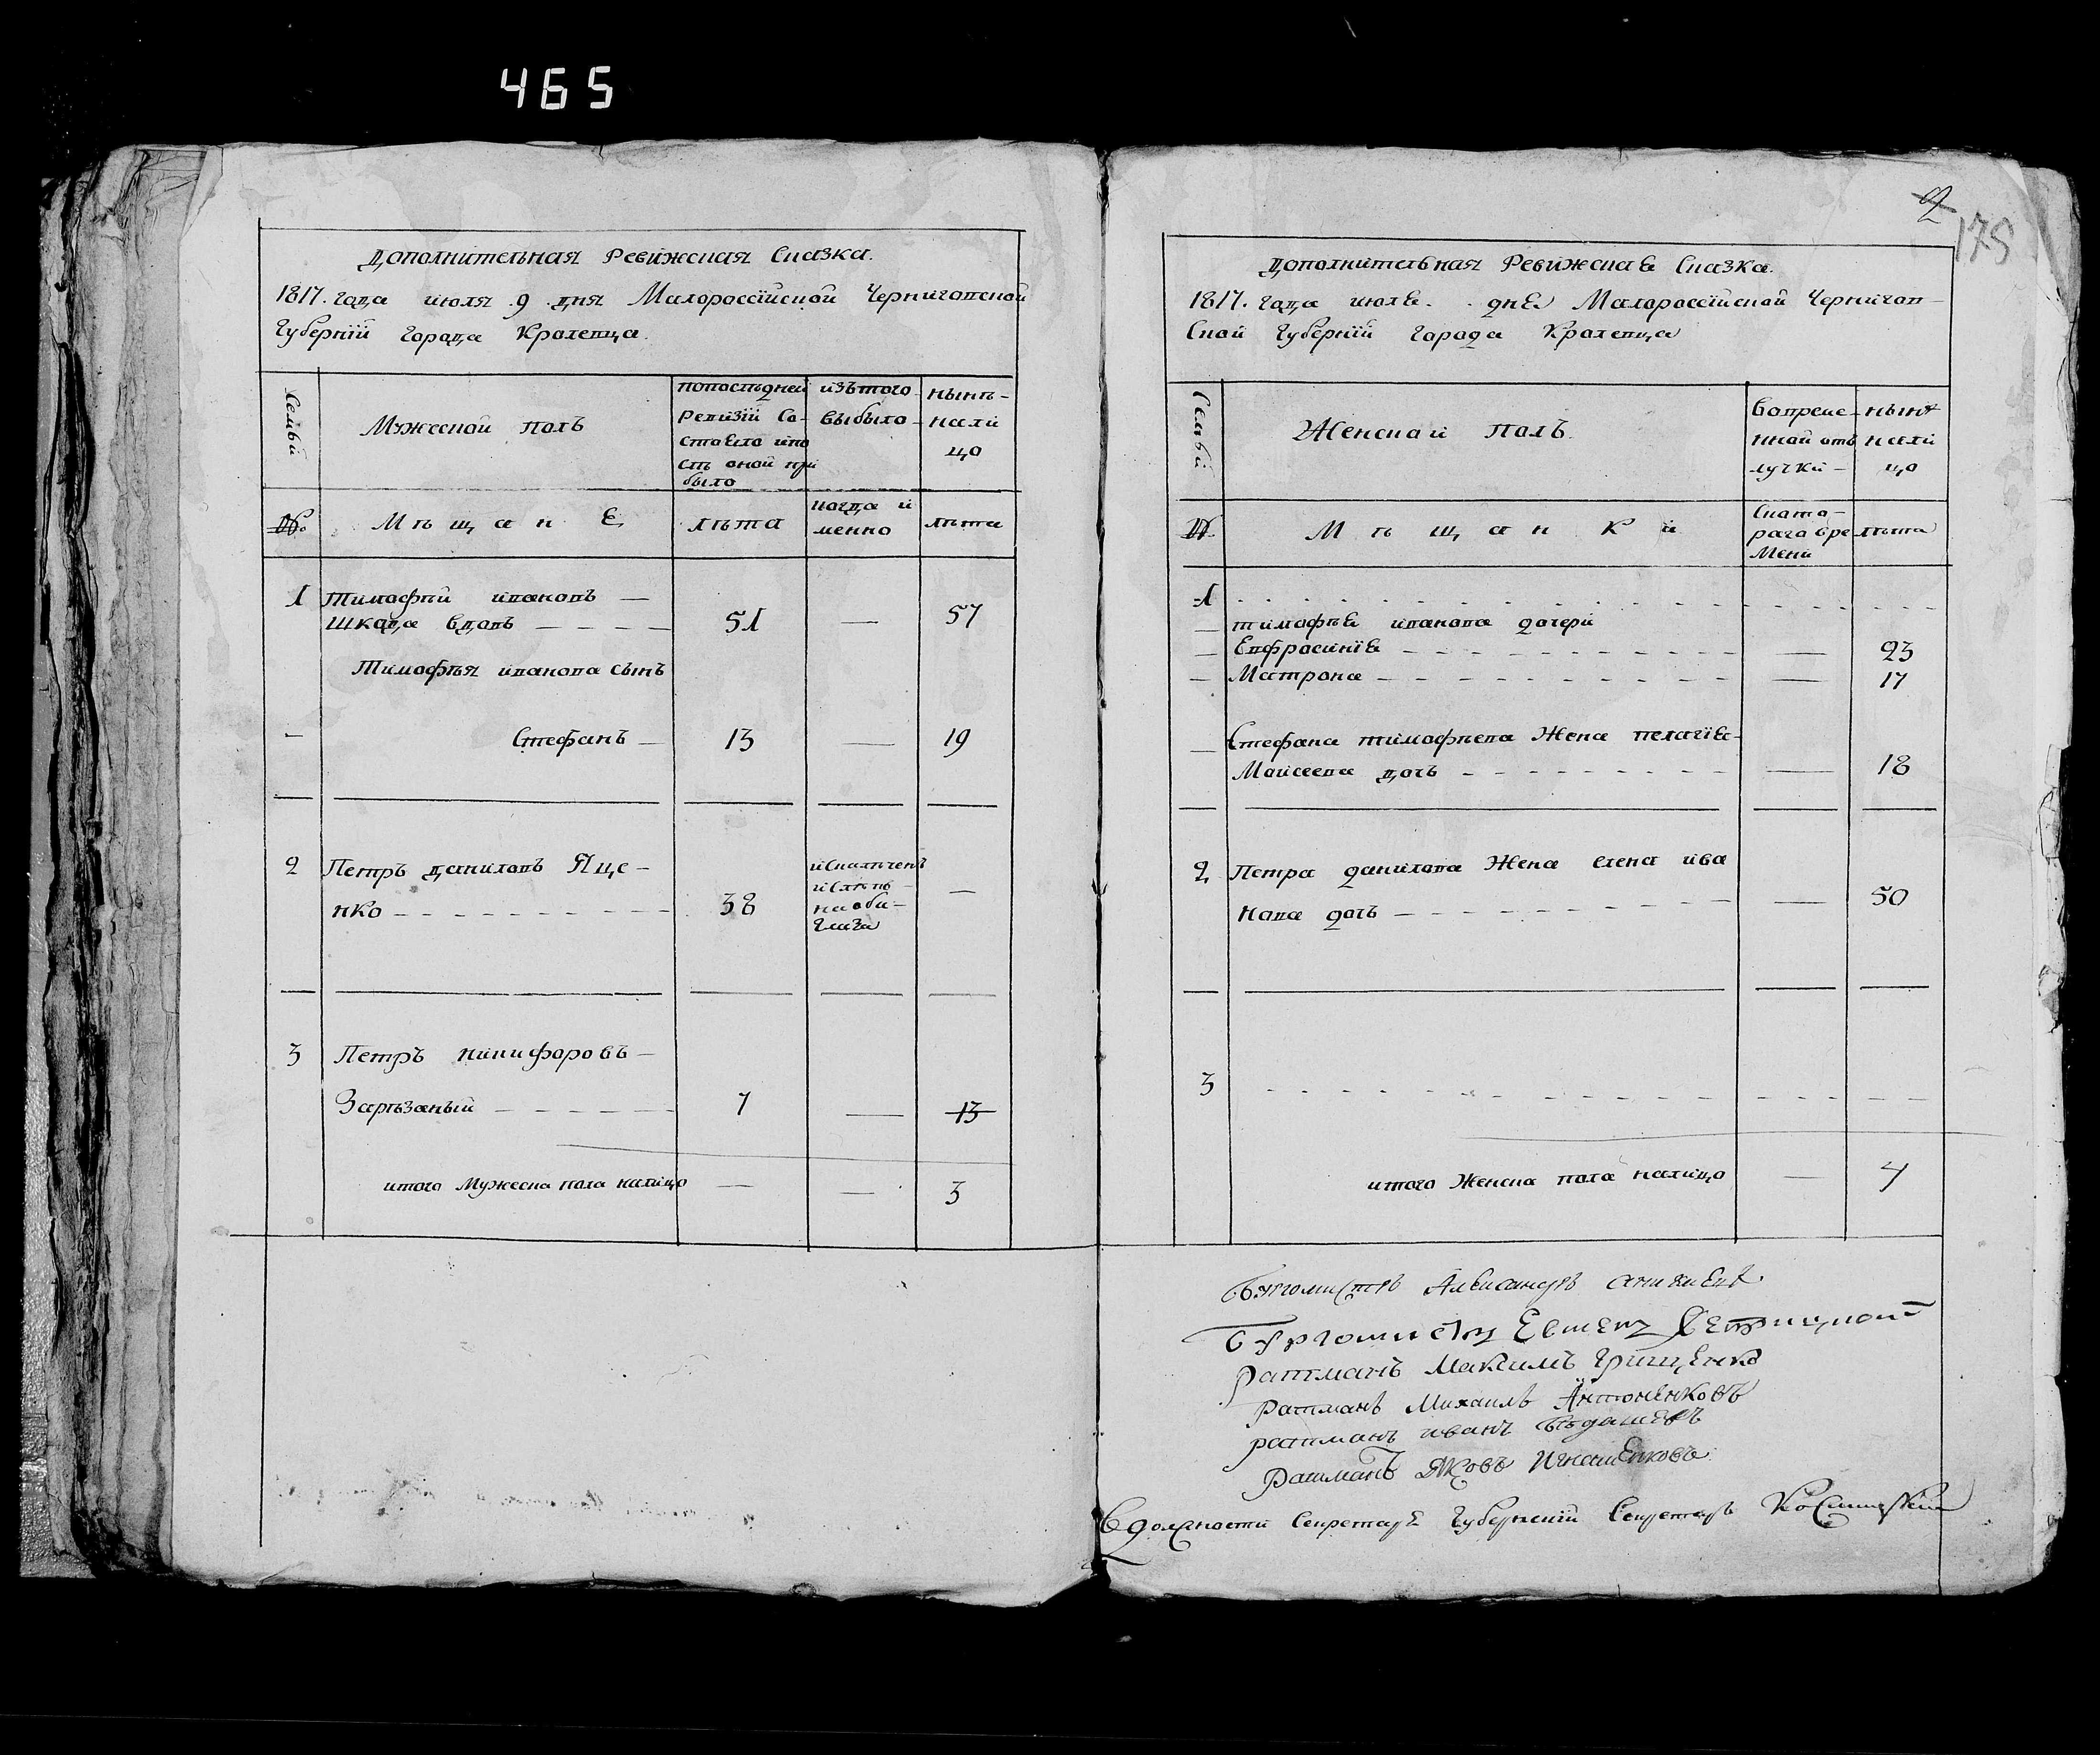 465
Дополнительная Ревижеская Сказка.
1817. года июля 9 дня Малороссійской Черниговской
Губерніи города Кролевца.
Семьи
Мужеской полъ
попослѣдней
ревизіи Со-
стояло ипо
слѣ оной при
было
изътого
выбыло
нынѣ-
нали
цо
№.
Мѣщане
лѣта
когда и
менно
лѣта
1 Тимофѣй ивановъ —
Шкода вдовъ — 51 — 57
Тимофѣя иванова сынъ
Стефанъ — 13 — 19
2 Петръ даниловъ Яце-
нко — 38 —
3 Петръ никифоровъ —
Зарѣзаный — 7 — 13
итого Мужеска пола налицо — — 3
2
175
Дополнительная Ревижеская Сказка.
1817. года июля. дня Малороссійской Чернигов-
ской Губерніи города Кролевца
Семьи
Женской полъ.
вовреме-
нной отъ
лучки —
нынѣ
нали
цо
№
Мѣщанки
Съкото-
раго вре
мени
лѣта
1
тимофѣя иванова дочери
Евфросинія — 23
Матрона — 17
Стефана тимофѣева Жена пелагія
Моисеева дочь — 18
2 Петра данилова Жена елена ива
нова дочь — 50
3
итого Женска пола налицо — 4
Бургомистръ Александръ
Бургомистръ
Ратманъ Максимъ Грищенко
Ратманъ Михаилъ Антоненковъ
ратманъ иванъ
Ратманъ Яковъ Игнатенковъ
В должности Секретаря Губернскій Секретарь